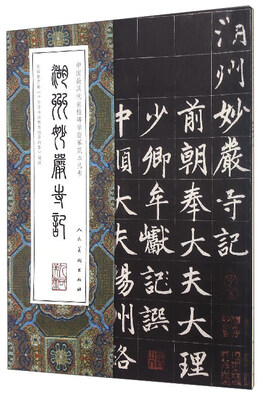 中国最具代表性碑帖临摹范本丛书
湖州妙严寺记
人民美术出版社
湖州妙嚴寺記
前朝奉大夫大理
少卿牟巘記譔
中順大夫揚州路